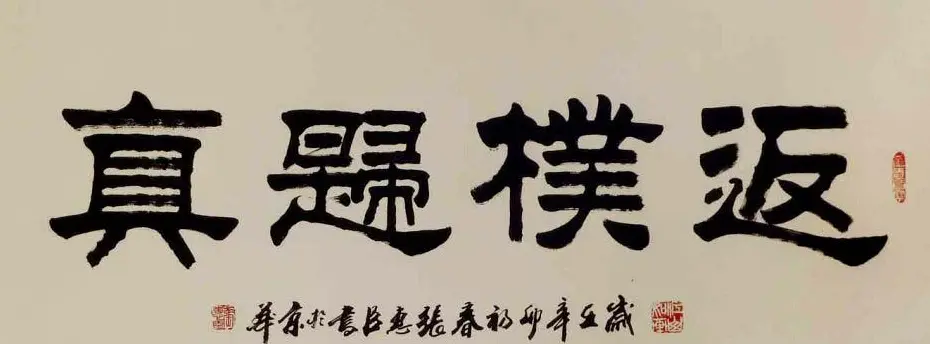 返樸歸真
歲在辛卯初春張惠臣書於京華